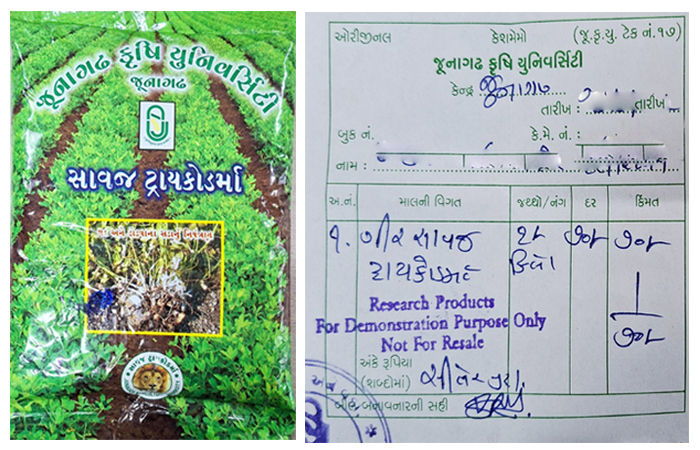 જૂનાગઢ કૃષિ યુનિવર્સિટી
જૂનાગઢ
સાવજ ટ્રાયકોડર્મા
સાવજ ટ્રાયકોડર્મા
ઓરીજીનલ કેશમેમો (જૂ.કૃ.યુ. ટેક નં.૧૭)
જૂનાગઢ કૃષિ યુનિવર્સિટી
કેન્દ્ર જુનાગઢ
તારીખ : તારીખ
બુક નં. કે.મે. નં. :
નામ :
અ.નં. માલની વિગત જથ્થો/નંગ દર કિંમત
૧. ગીર સાવજ
ટ્રાયકોડર્મા કિલો
Research Products
For Demonstration Purpose Only
Not For Resale
અંકે રૂપિયા
(શબ્દોમાં)
બીલ બનાવનારની સહી